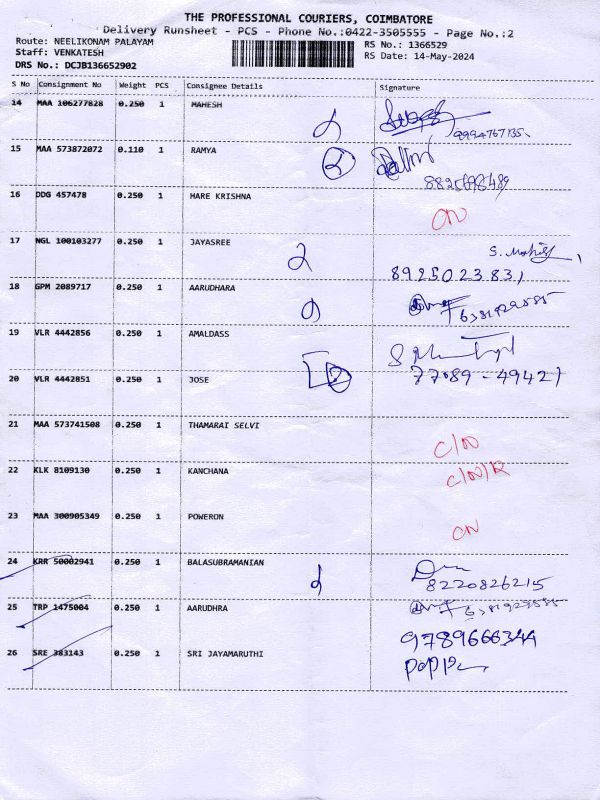 THE PROFESSIONAL COURIERS, COIMBATORE
Delivery Runsheet - PCS - Phone No.:0422-3505555 - Page No.:2
Route: NEELIKONAM PALAYAM
Staff: VENKATESH
DRS No.: DCJB136652902
RS No.: 1366529
RS Date: 14-May-2024
S No Consignment No Weight PCS Consignee Details Signature
14 MAA 106277828 0.250 1 MAHESH
9994767735
15 MAA 573872072 0.110 1 RAMYA
16 DDG 457478 0.250 1 HARE KRISHNA
17 NGL 100103277 0.250 1 JAYASREE
8925023831
18 GPM 2089717 0.250 1 AARUDHARA
19 VLR 4442856 0.250 1 AMALDASS
20 VLR 4442851 0.250 1 JOSE
77089-49421
21 MAA 573741508 0.250 1 THAMARAI SELVI
C/N
22 KLK 8109130 0.250 1 KANCHANA
C/N/R
23 MAA 300905349 0.250 1 POWERON
24 KRR 50002941 0.250 1 BALASUBRAMANIAN
8220826215
25 TRP 1475004 0.250 1 AARUDHRA
26 SRE 383143 0.250 1 SRI JAYAMARUTHI
9789666344